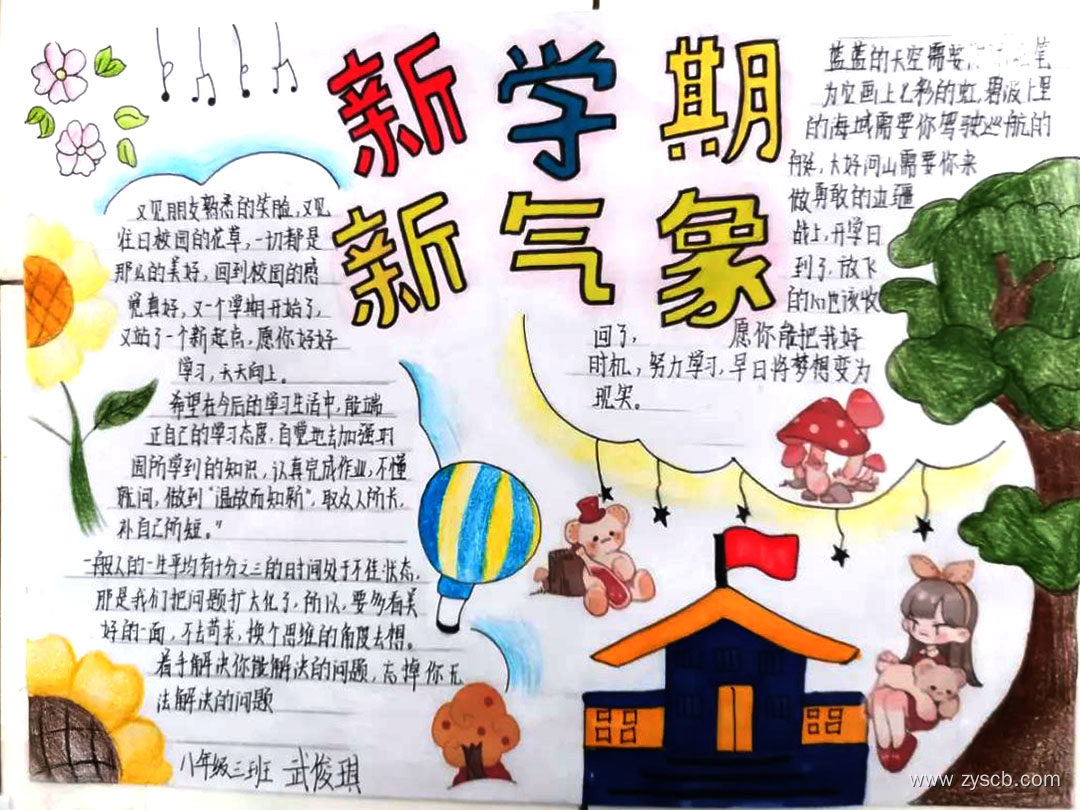 新学期
新气象
又见朋友熟悉的笑脸,又见
往日校园的花草,一切都是
那么的美好,回到校园的感
觉真好,又一个学期开始了,
又站了一个新起点,愿你好好
学习,天天向上。
希望在今后的学习生活中,能端
正自己的学习态度,自觉地去加强巩
固所学到的知识,认真完成作业,不懂
就问,做到“温故而知新”,取众人所长,
补自己所短。”
一般人的一生平均有十分之三的时间处于不佳状态,
那是我们把问题扩大化了,所以,要多看美
好的一面,不去苛求,换个思维的角度去想。
着手解决你能解决的问题,忘掉你无
法解决的问题
八年级三班 武俊琪
蓝蓝的天空需要 笔
为它画上七彩的虹,碧波上里
的海域需要你驾驶巡航的
舰,大好河山需要你来
做勇敢的边疆
战士,开学日
到了,放飞
的心也该收
回了, 愿你能把我好
时机,努力学习,早日将梦想变为
现实。
www.zyscb.com